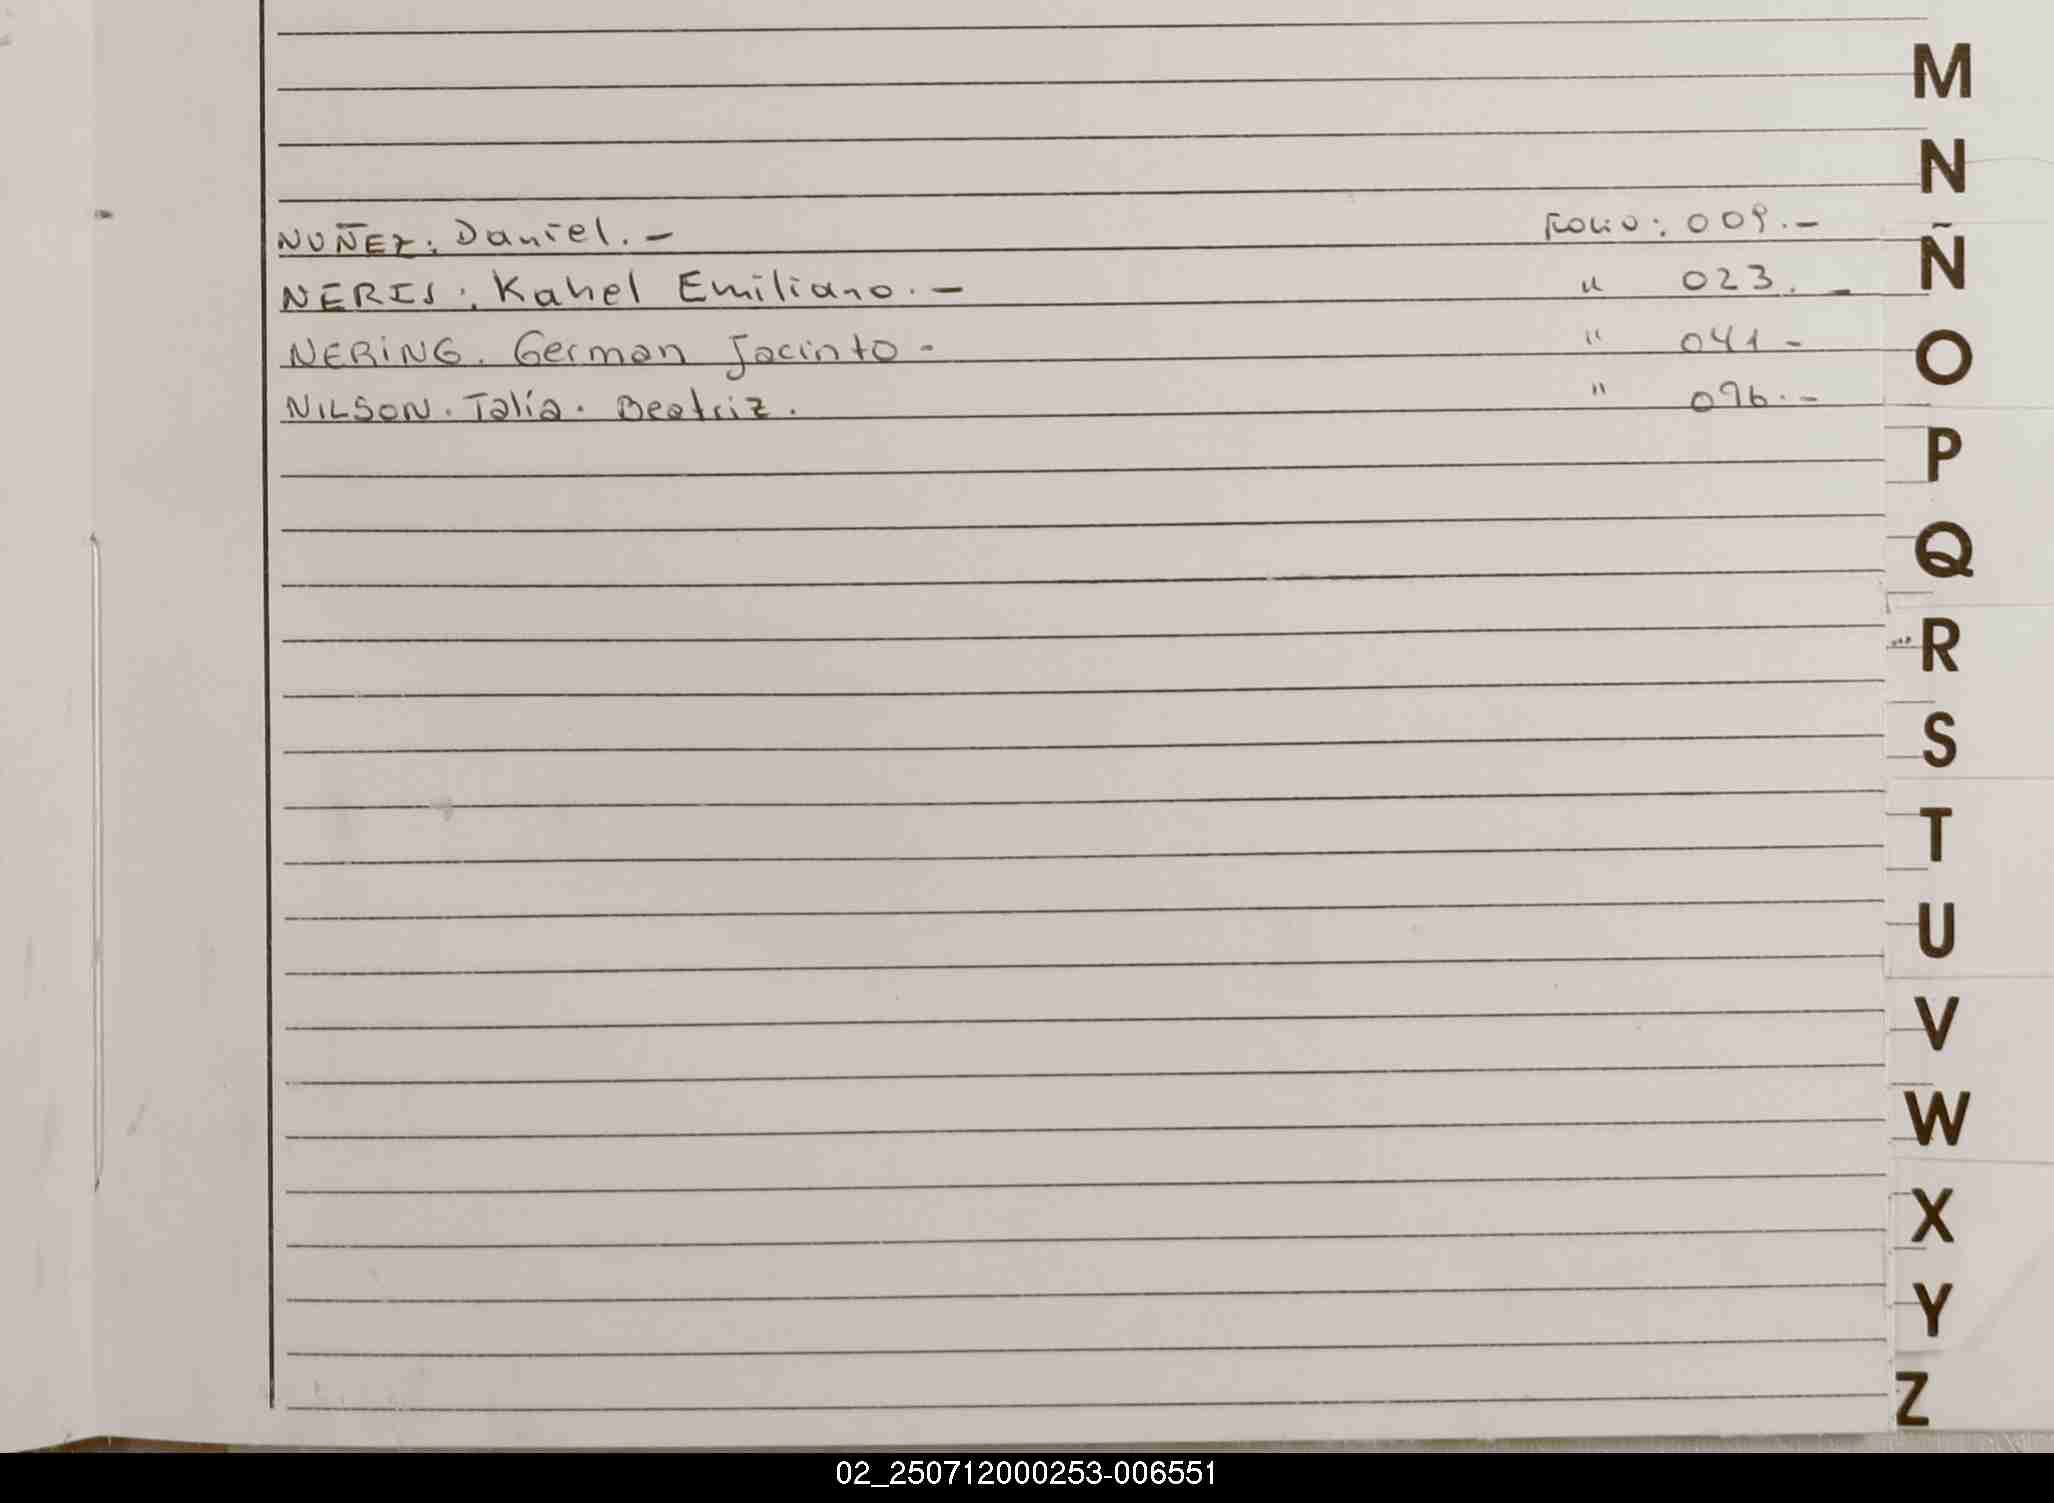 M
N
NUÑEZ: Daniel.- Folio: 009.-
Ñ
NERIS: Kahel Emiliano.- " 023.-
NERING. German Jacinto- " 041-
O
NILSON. Talía. Beatriz. " 096.-
P
Q
R
S
T
U
V
W
X
Y
Z
02_250712000253-006551